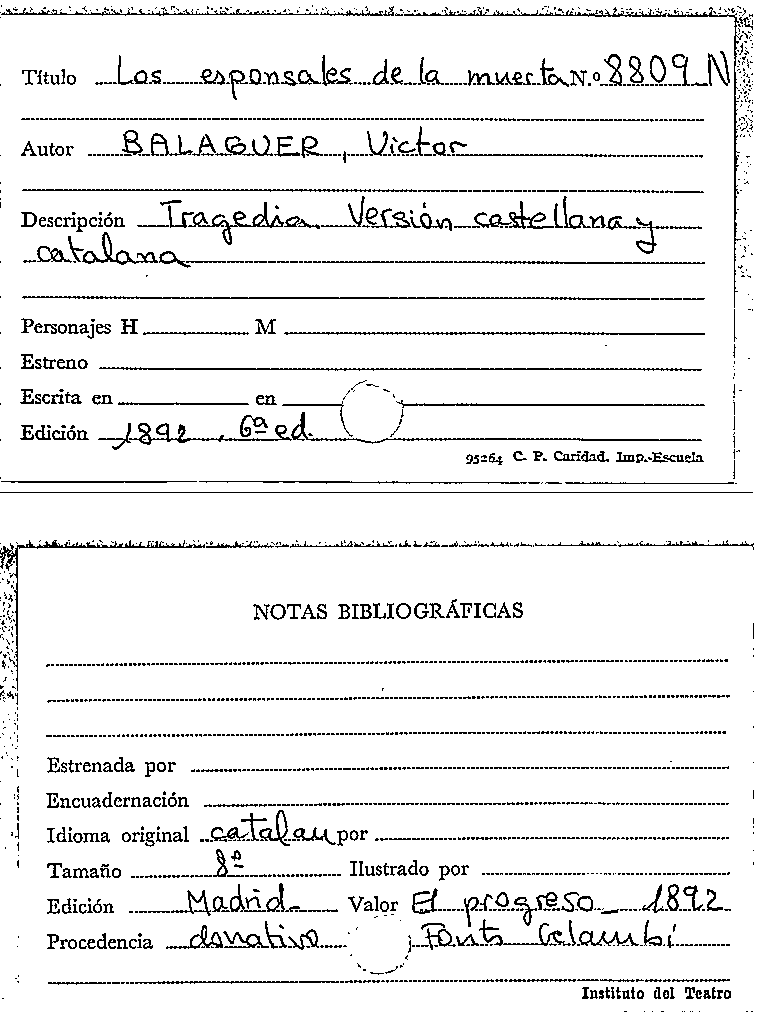 Título Los esponsales de la muerta N.º 8809 N
Autor BALAGUER, Victor
Descripción Tragedia. Versión castellana y
catalana
Personajes H M
Estreno
Escrita en en
Edición 1892, 6ª ed.
95264 C. P. Caridad. Imp.-Escuela
NOTAS BIBLIOGRÁFICAS
Estrenada por
Encuadernación
Idioma original catalan por
Tamaño 8º Ilustrado por
Edición Madrid Valor El progreso 1892
Procedencia donativo Fonts
Instituto del Teatro